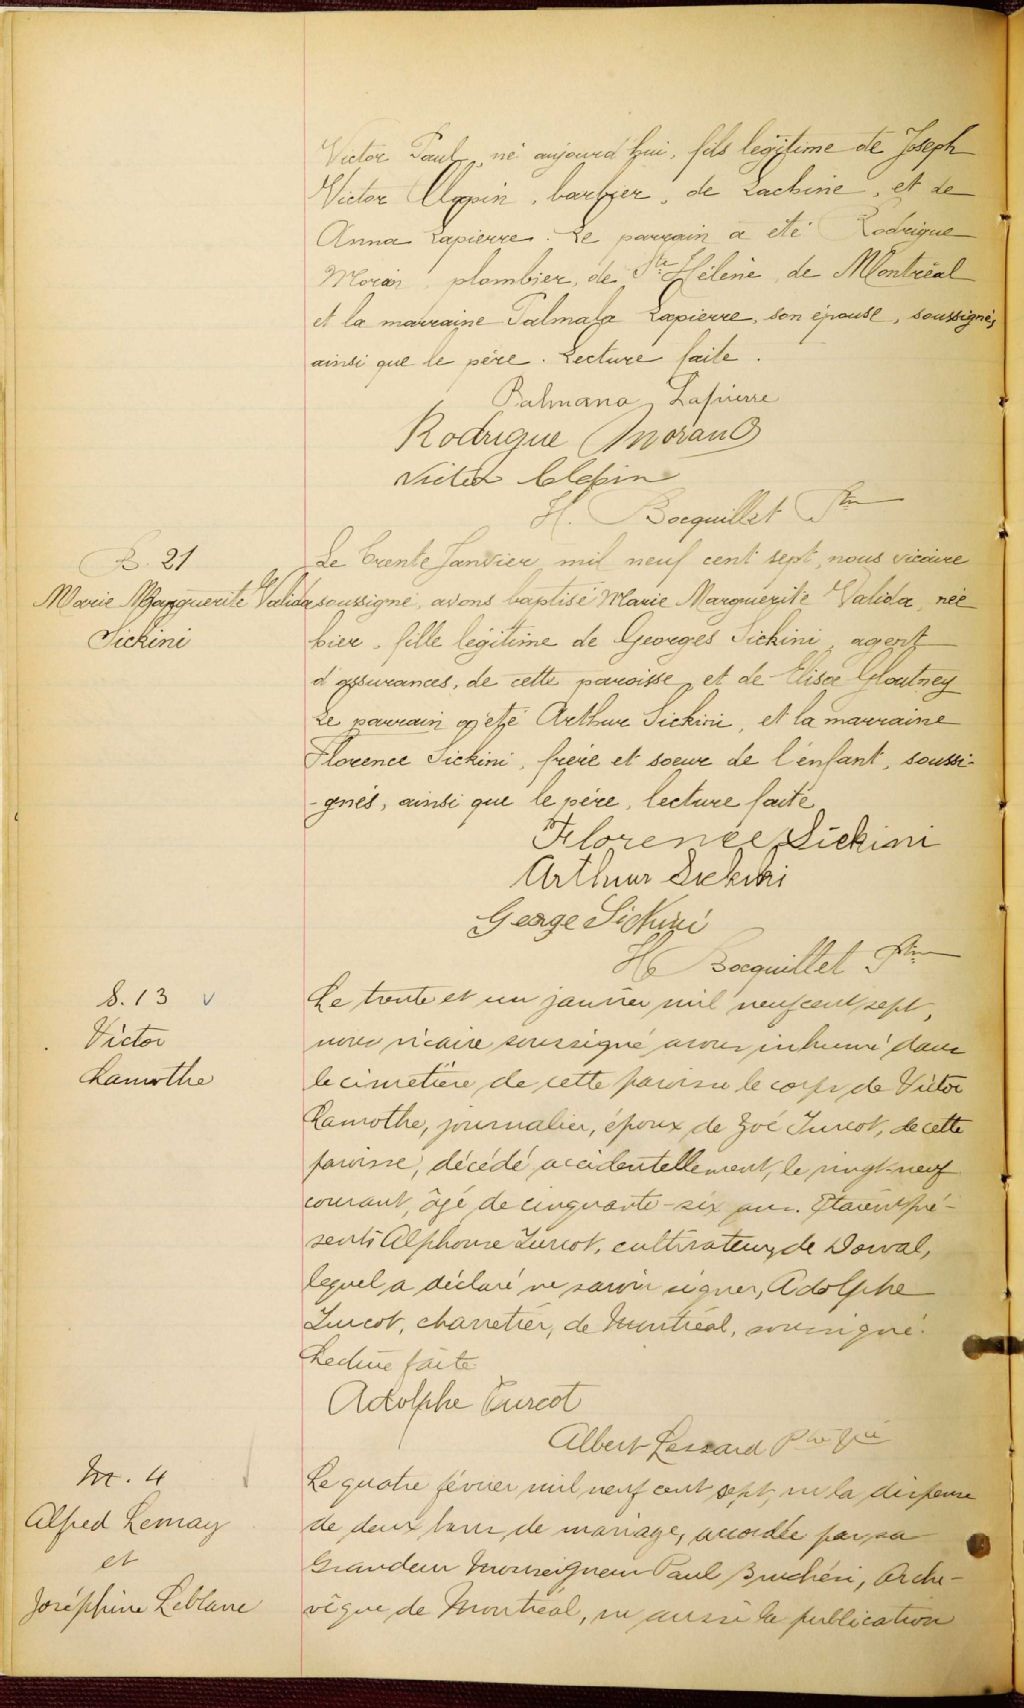 Victor Paul, né aujourd'hui, fils légitime de Joseph
Victor Clopin, barbier, de Lachine, et de
Anna Lapierre. Le parrain a été Rodrigue
Morin, plombier, de Ste Hélène, de Montréal
et la marraine Palmala Lapierre, son épouse, soussignés
ainsi que le père. Lecture faite.
Palmana Lapierre
Rodrigue Morand
Victor Clopin
H. Bocquillet Ptre
B. 21
Marie Marguerite Valida
Sickini
Le trente Janvier mil neuf cent sept, nous vicaire
soussigné, avons baptisé Marie Marguerite Valida, née
hier, fille légitime de Georges Sickini, agent
d'assurances, de cette paroisse, et de Elisa Gloutney
Le parrain a été Arthur Sickini, et la marraine
Florence Sickini, frère et soeur de l'enfant, soussi-
-gnés, ainsi que le père, lecture faite
Florence Sickini
Arthur Sickini
George Sickini
H. Bocquillet Ptre
S. 13
Victor
Lamothe
Le trente et un janvier mil neuf cent sept,
nous vicaire soussigné avons inhumé dans
le cimetière de cette paroisse le corps de Victor
Lamothe, journalier, époux de Zoé Turcot, de cette
paroisse, décédé accidentellement, le vingt-neuf
courant, âgé de cinquante-six ans. Etaient pré-
sents Alphonse Turcot, cultivateur, de Dorval,
lequel a déclaré ne savoir signer, Adolphe
Turcot, charretier, de Montréal, soussigné.
Lecture faite
Adolphe Turcot
Albert Lessard Ptre Vic
M. 4
Alfred Lemay
et
Joséphine Leblanc
Le quatre février mil neuf cent sept, vu la dispense
de deux bans de mariage, accordée par sa
Grandeur Monseigneur Paul Bruchési, Arche-
vêque de Montréal, vu aussi la publication